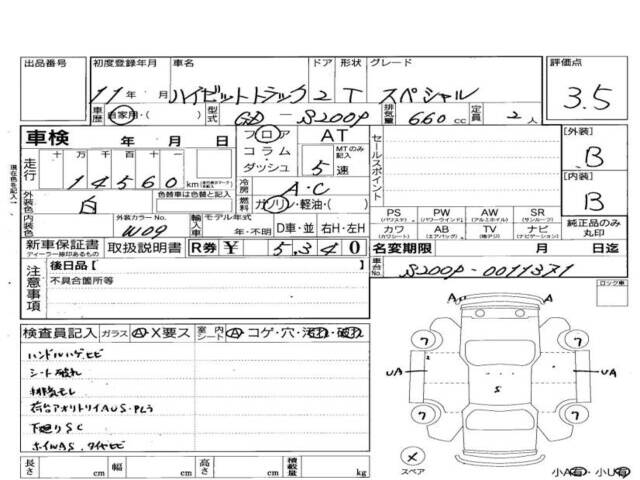 出品番号 初度登録年月 車名 ドア 形状 グレード 評価点
11年 月 ハイゼットトラック 2 T スペシャル 3.5
車歴 自家用・( ) 型式 GD - S200P 排気量 660cc 定員 2人
車検 年 月 日 フロア AT セールスポイント [外装] B
走行 十万千百十一 コラム・ MTのみ記入
14560 km ダッシュ 5速 [内装] B
冷房 A・C
外装色 白 色替車は色替と記入 燃料 ガソリン・軽油・( )
PS (パワステ) PW (パワーウインド) AW (アルミホイル) SR (サンルーフ)
内装色 外装カラーNo. W09 輸入車 モデル年式 年・不明 D車・並 右H・左H カワ (カワシート) AB (エアバッグ) TV ナビ (ナビゲーション) 純正品のみ丸印
新車保証書 ディーラー捺印あるもの 取扱説明書 R券 ¥ 5,340 名変期限 月 日迄
注意事項 後日品[ 車台No. S200P-0011371
不具合箇所等 ロック車
A A
検査員記入 ガラス A・X要ス 室内シート A・コゲ・穴・汚れ・破れ
7 7
ハンドルハゲ.ヒビ
シート破れ
UA S UA
排気モレ
荷台アオリトリイAUS・PLラ
7 7
下廻りSC
ホイルAS.タイヤヒビ
X スペア
長さ cm 幅 cm 高さ cm 積載量 kg 小A有・小U有